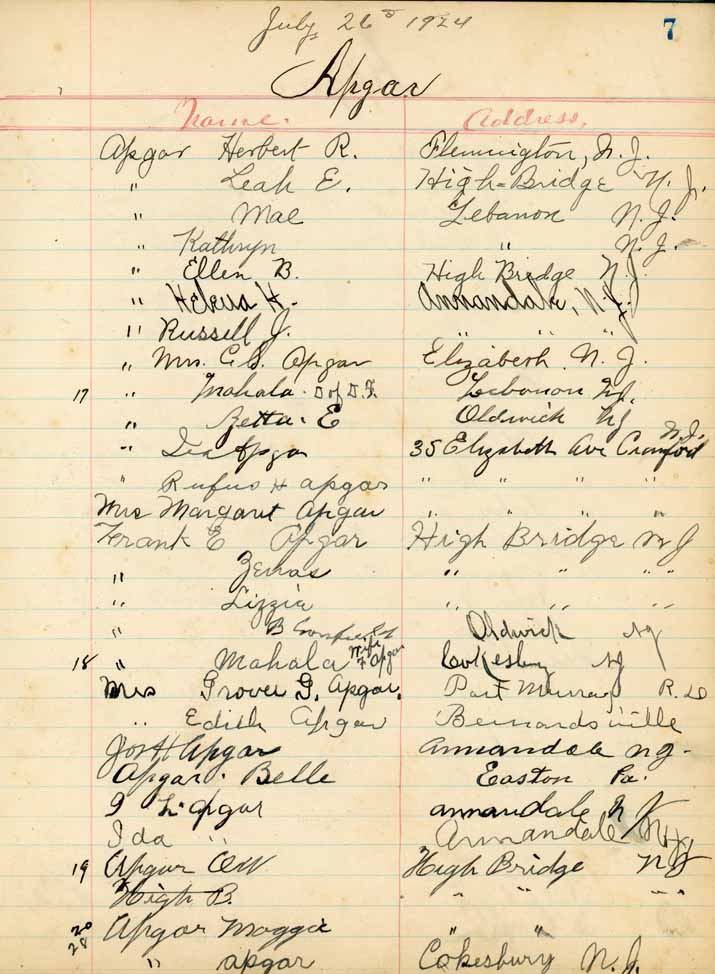 July 26 1924
7
Apgar
Name. Address.
Apgar Herbert R. Flemington, N.J.
" Leah E. High-Bridge N.J.
" Mae Lebanon N.J.
" Kathryn " N.J.
" Ellen B. High Bridge N.J.
" H. Annandale, N.J.
" Russell J. " " "
" Mrs. C.S. Apgar Elizabeth N.J.
17 " Mahala D of J.F. Lebanon NJ.
" Betta. E Oldwick NJ
" Apgar 35 Elizabeth Ave Cranford N.J.
" Rufus H apgar " " " "
Mrs Margaret Apgar " " " "
Frank E Apgar High Bridge N J
" Zenas " " " "
" Lizzie " " " "
" B Oldwick NJ
18 " Mahala Wife F Apgar Cokesbury NJ
Mrs Grover G. Apgar. Port Murray R.D
" Edith Apgar Bernardsville
Jos H Apgar Annandale N J.
Apgar. Belle Easton Pa.
Apgar annandale N J
Ida " Annandale N.J.
19 Apgar High Bridge N J
High B. " " " "
20 Apgar Maggie " "
28 " apgar Cokesbury N.J.